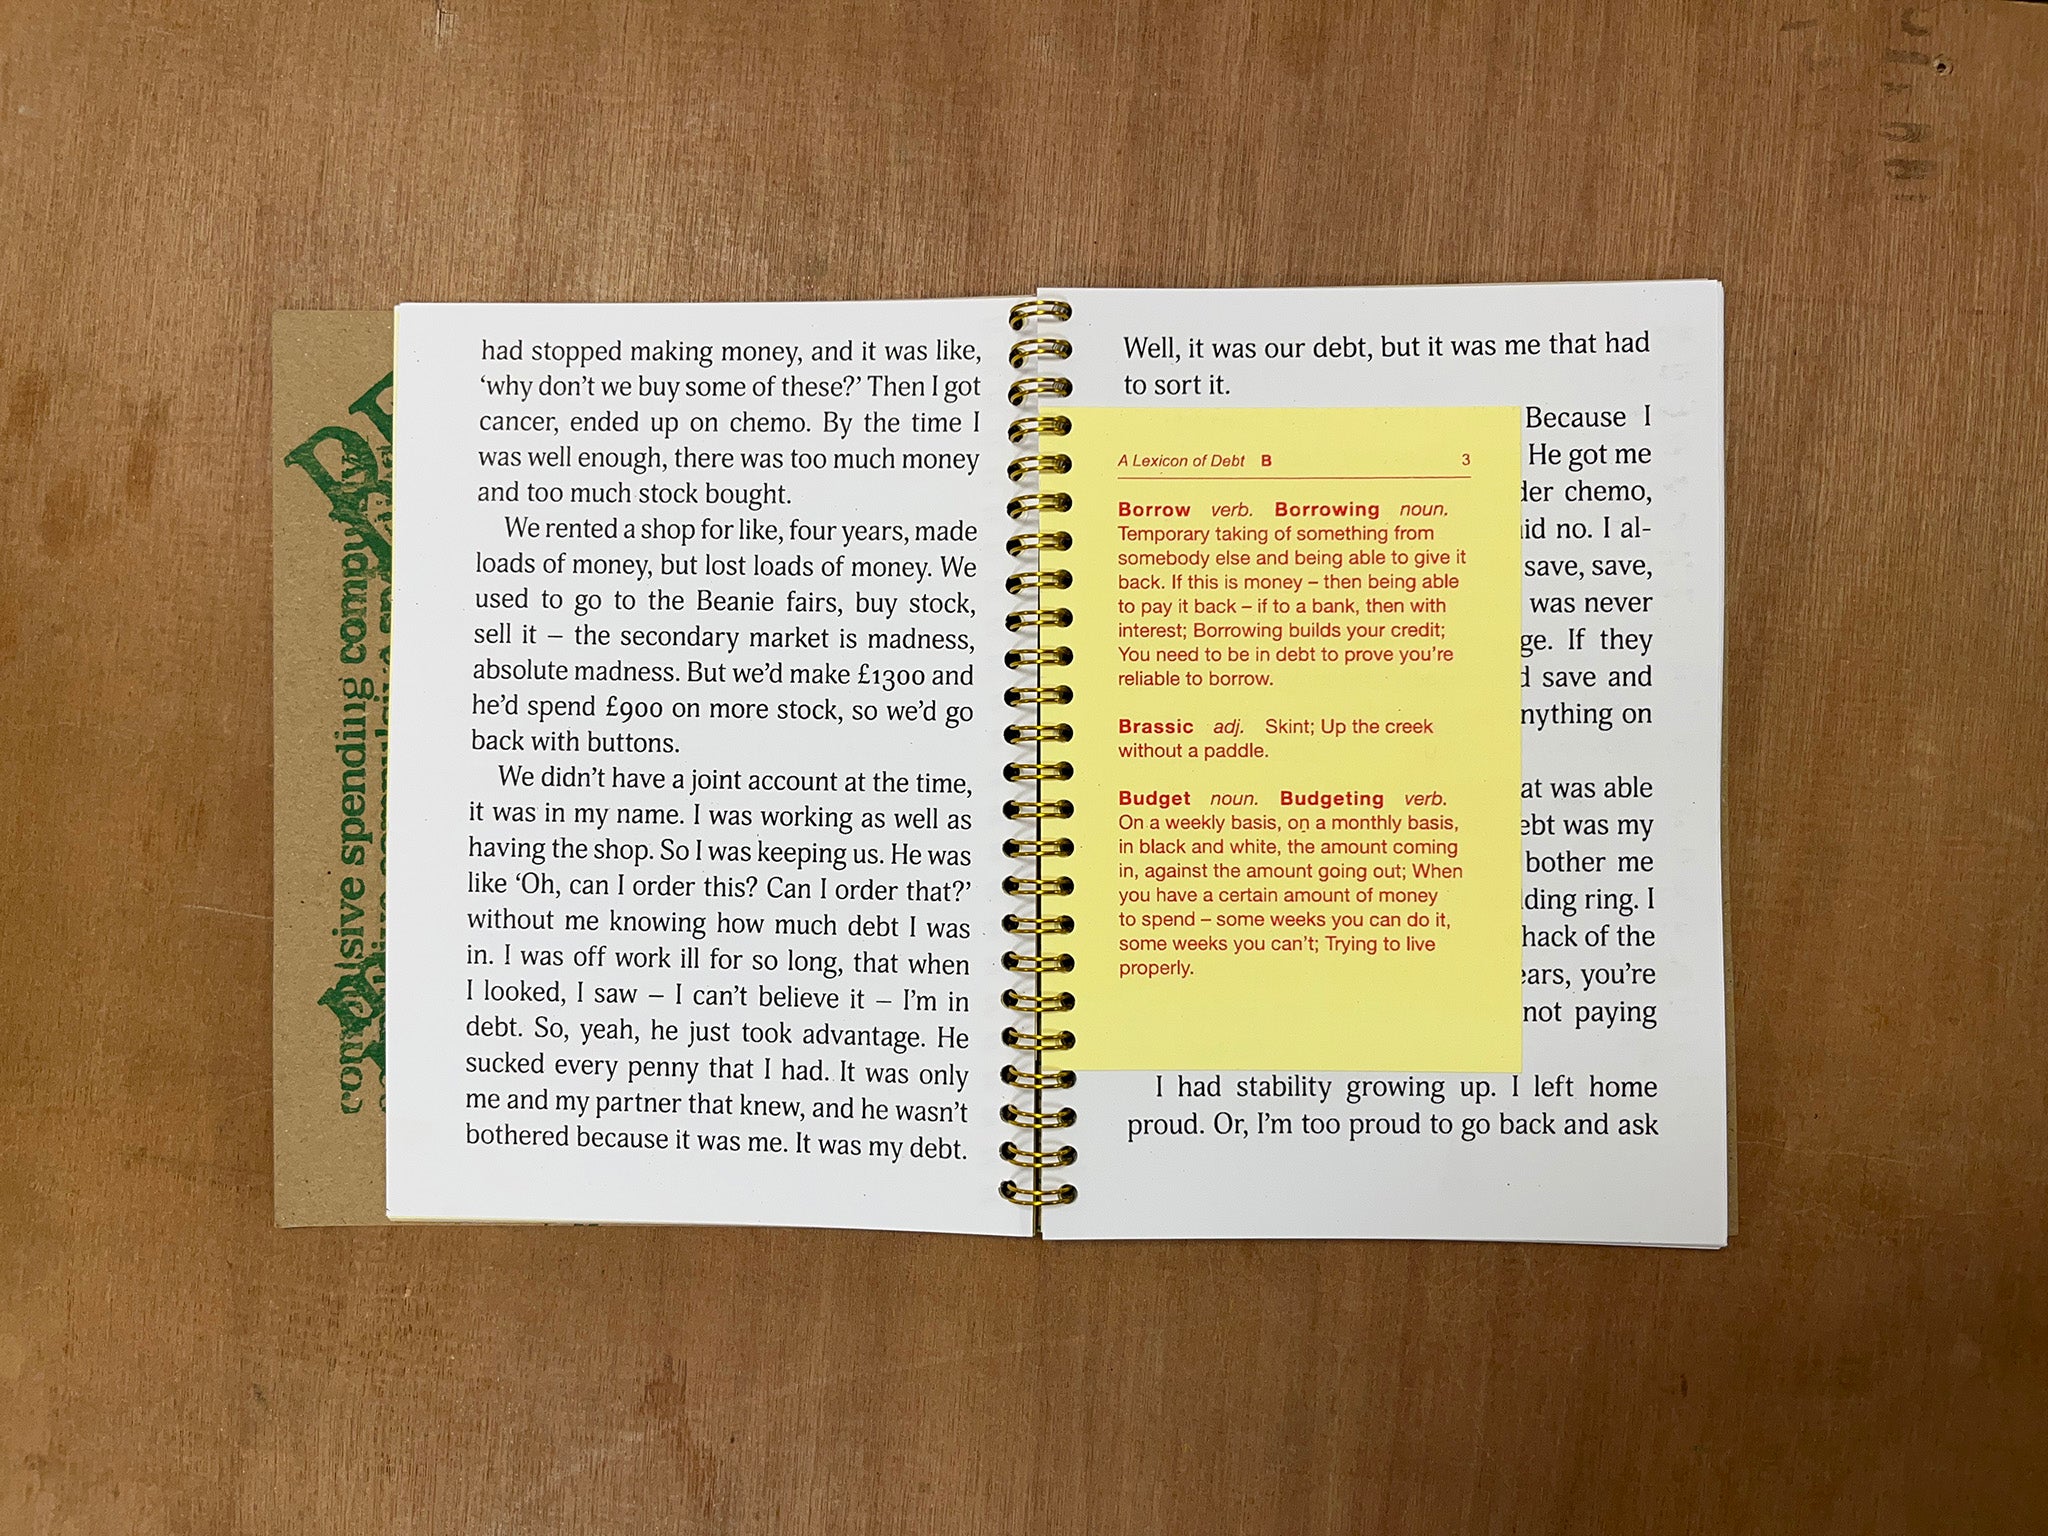 compulsive spending compu
had stopped making money, and it was like,
‘why don’t we buy some of these?’ Then I got
cancer, ended up on chemo. By the time I
was well enough, there was too much money
and too much stock bought.
We rented a shop for like, four years, made
loads of money, but lost loads of money. We
used to go to the Beanie fairs, buy stock,
sell it – the secondary market is madness,
absolute madness. But we’d make £1300 and
he’d spend £900 on more stock, so we’d go
back with buttons.
We didn’t have a joint account at the time,
it was in my name. I was working as well as
having the shop. So I was keeping us. He was
like ‘Oh, can I order this? Can I order that?’
without me knowing how much debt I was
in. I was off work ill for so long, that when
I looked, I saw – I can’t believe it – I’m in
debt. So, yeah, he just took advantage. He
sucked every penny that I had. It was only
me and my partner that knew, and he wasn’t
bothered because it was me. It was my debt.
Well, it was our debt, but it was me that had
to sort it.
A Lexicon of Debt B 3
Borrow verb. Borrowing noun.
Temporary taking of something from
somebody else and being able to give it
back. If this is money – then being able
to pay it back – if to a bank, then with
interest; Borrowing builds your credit;
You need to be in debt to prove you’re
reliable to borrow.
Brassic adj. Skint; Up the creek
without a paddle.
Budget noun. Budgeting verb.
On a weekly basis, on a monthly basis,
in black and white, the amount coming
in, against the amount going out; When
you have a certain amount of money
to spend – some weeks you can do it,
some weeks you can’t; Trying to live
properly.
Because I
He got me
der chemo,
id no. I al-
save, save,
was never
ge. If they
save and
nything on
at was able
ebt was my
bother me
ding ring. I
hack of the
ears, you’re
not paying
I had stability growing up. I left home
proud. Or, I’m too proud to go back and ask